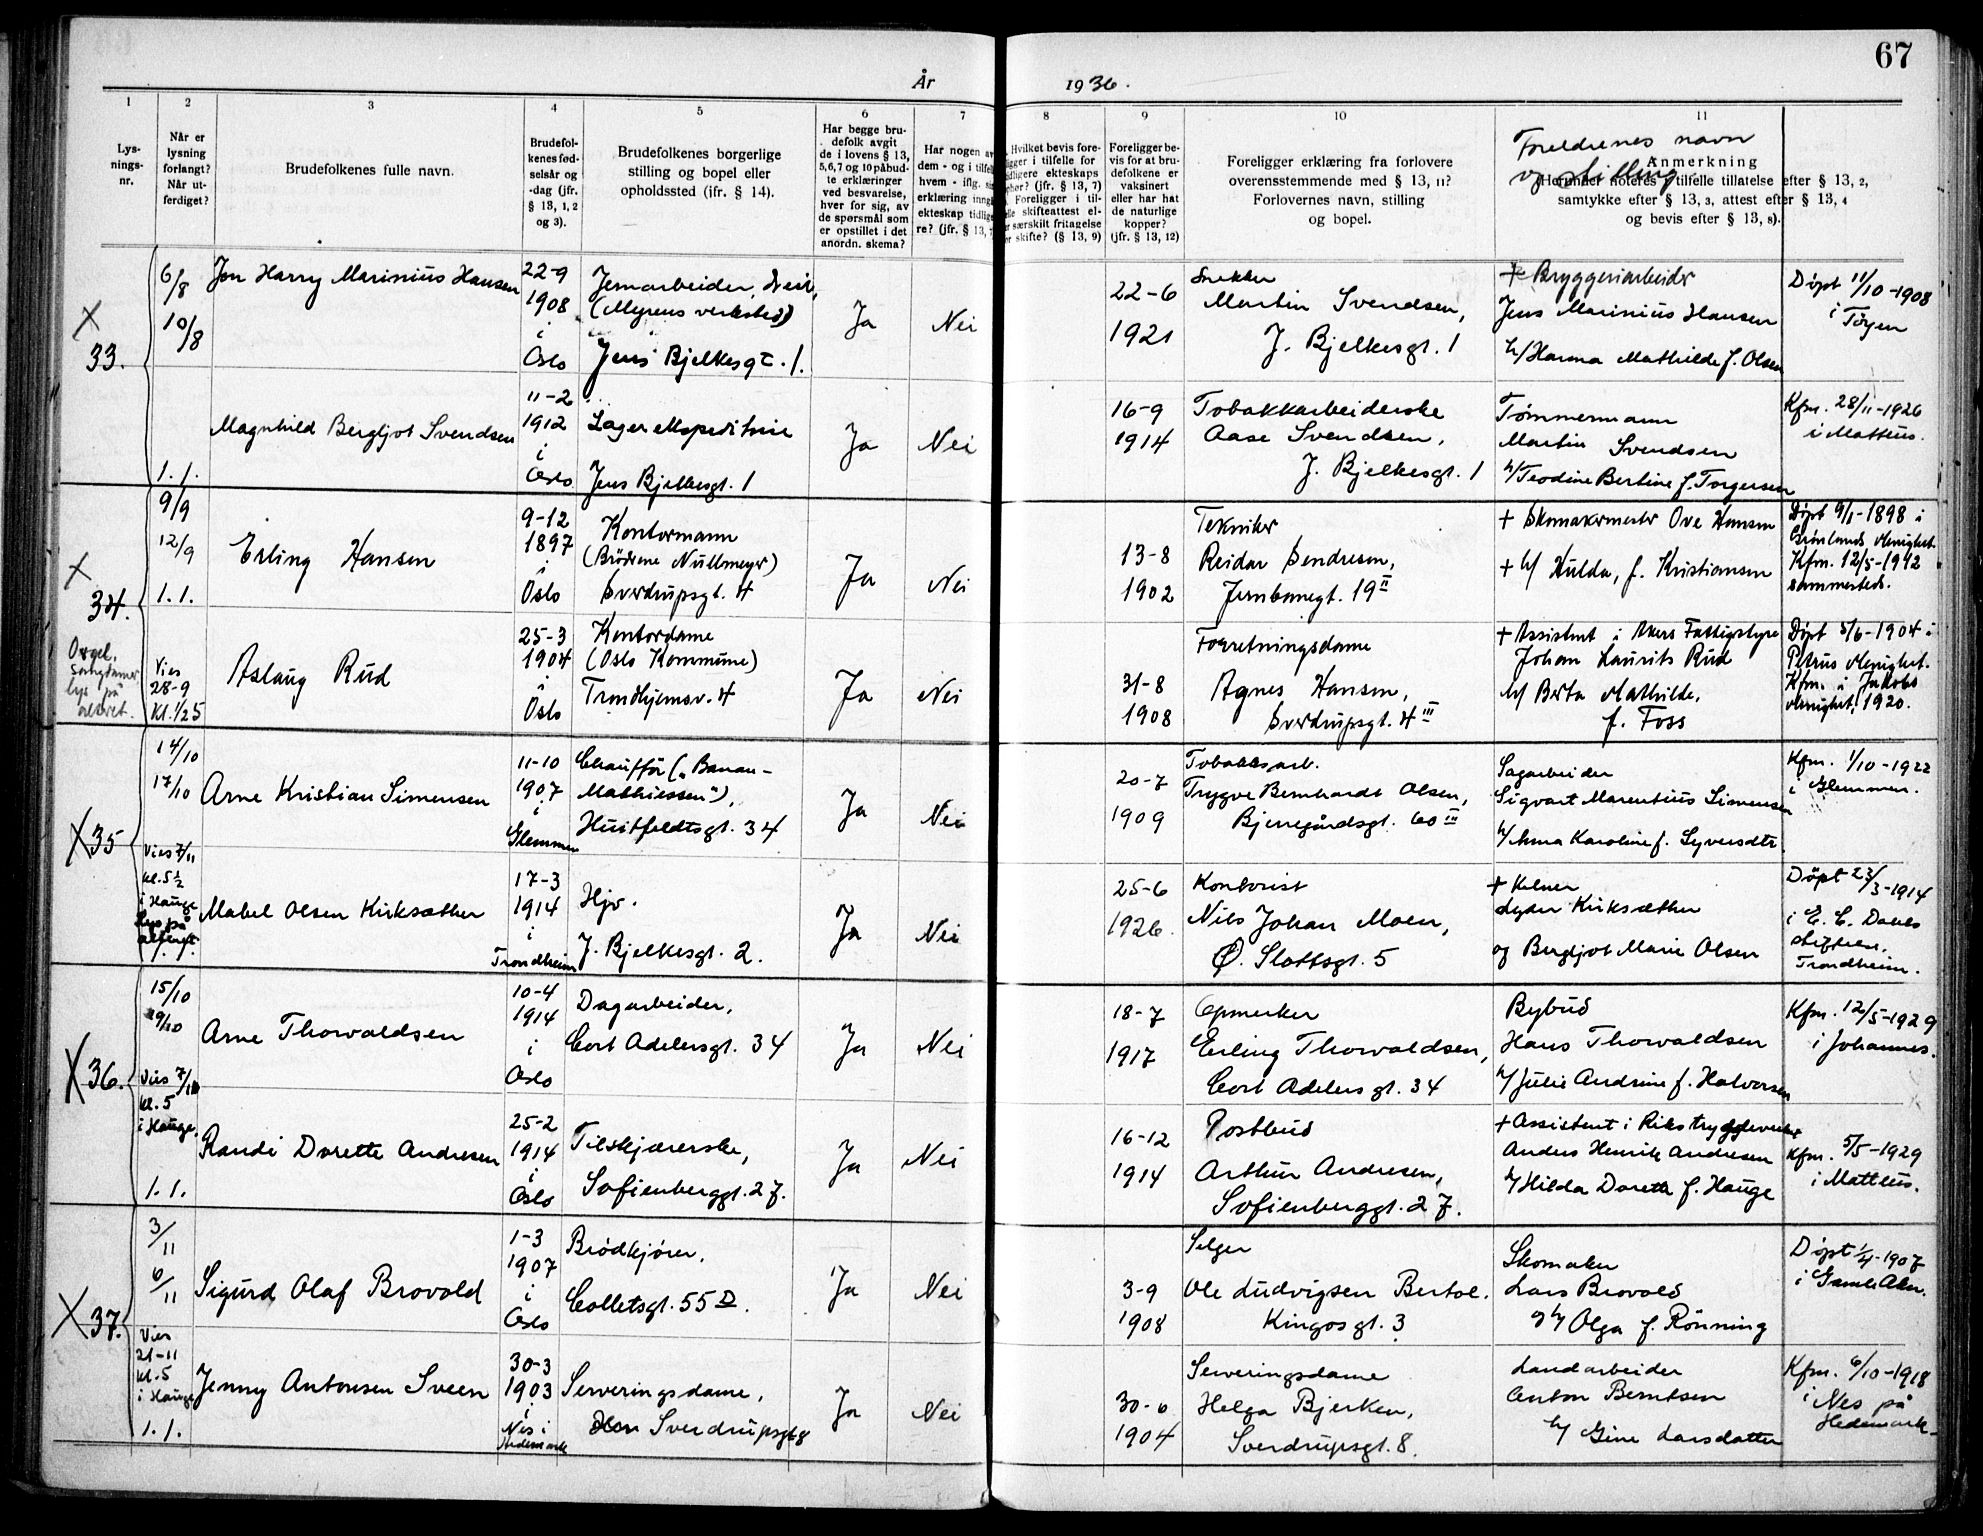 67
År 1936.
1 2 3 4 5 6 7 8 9 10 11
Lys-
nings-
nr.
Når er
lysning
forlangt?
Når ut-
ferdiget?
Brudefolkenes fulle navn.
Brudefol-
kenes fød-
selsår og
-dag (jfr.
§ 13, 1, 2
og 3).
Brudefolkenes borgerlige
stilling og bopel eller
opholdssted (jfr. § 14).
Har begge bru-
defolk avgit
de i lovens § 13,
5, 6, 7 og 10 påbud-
te erklæringer
ved besvarelse,
hver for sig, av
de spørsmål som
er opstillet i det
anordn. skema?
Har nogen av
dem - og i tilfelle
hvem - iflg.
erklæring inngått
ekteskap tidlige-
re? (jfr. § 13, 7)
Hvilket bevis fore-
ligger i tilfelle for
tidligere ekteskaps
ophør? (jfr. § 13, 7)
Foreligger i til-
felle skifteattest el-
ler særskilt fritagelse
for skifte? (§ 13, 9)
Foreligger be-
vis for at bru-
defolkene er
vaksinert
eller har hat
de naturlige
kopper?
(jfr. § 13, 12)
Foreligger erklæring fra forlovere
overensstemmende med § 13, 11?
Forlovernes navn, stilling
og bopel.
Foreldrenes navn
og stilling
Anmerkning
Herunder noteres i tilfelle tillatelse efter § 13, 2,
samtykke efter § 13, 3, attest efter § 13, 4
og bevis efter § 13, 8).
X
33.
6/8
10/8
Jon Harry Marinius Hansen
22-9
1908
i
Oslo
Jernarbeider,
(Myrens verksted)
Jens Bjelkesgt. 1.
Ja
Nei
22-6
1921
Snekker
Martin Svendsen,
J. Bjelkesgt. 1
+ Bryggeriarbeider
Jens Marinius Hansen
h/ Hanna Mathilde f. Olsen
Døpt 11/10-1908
i Tøyen
1.1.
Magnhild Bergljot Svendsen
11-2
1912
i
Oslo
Lagerekspeditrise
Jens Bjelkesgt. 1
Ja
Nei
16-9
1914
Tobakkarbeiderske
Aase Svendsen,
J. Bjelkesgt. 1
Tømmermann
Martin Svendsen
h/ Teodine Bertine f. Torgersen
Kfm. 28/11-1926
i Matteus.
X
34.
9/9
12/9
1.1.
Erling Hansen
9-12
1897
i
Oslo
Kontormann
(Brødrene Nullmeyer)
Sverdrupsgt. 4
Ja
Nei
13-8
1902
Tekniker
Reidar Sendresen,
Jernbanegt. 19 II
+ Skomakermester Ove Hansen
+ h/ Hulda, f. Kristiansen
Døpt 9/1-1898 i
Grønlands Menighet.
Kfm. 12/5-1912
sammesteds.
Orgel,
lys på
alteret.
Vies
28-9
kl. 1/2 5
Aslaug Rud
25-3
1904
i
Oslo
Kontordame
(Oslo Kommune)
Trondhjemsv. 4
Ja
Nei
31-8
1908
Forretningsdame
Agnes Hansen,
Sverdrupsgt. 4 III
+ Assistent i Akers Fattigstyre
Johan Laurits Rud
h/ Berta Mathilde,
f. Foss
Døpt 5/6-1904 i
Petrus Menighet.
Kfm. i Jakobs
Menighet, 1920.
X 35
14/10
17/10
Arne Kristian Simensen
11-10
1907
i
Glemmen
Chauffør („Banan-
Mathiessen"),
Huitfeldtsgt. 34
Ja
Nei
20-7
1909
Tobakksarb.
Trygve Bernhardt Olsen,
Bjerregårdsgt. 60 III
Sagarbeider
Sigvart Marentius Simensen
h/ Anna Karoline f. Syversdtr.
Kfm. 1/10-1922
i Glemmen.
Vies 7/11
kl. 5 1/2
i Hauge
Lys på
Mabel Olsen Kirksæther
17-3
1914
i
Trondheim
Hjv.
J. Bjelkesgt. 2.
Ja
Nei
25-6
1926.
Kontorist
Nils Johan Moen,
Ø. Slottsgt. 5
+ Kelner
Lyder Kirksæther
og Bergljot Marie Olsen
Døpt 23/3-1914
i E. C. Dahls
stiftelse,
Trondheim.
X 36.
15/10
19/10
Arne Thorvaldsen
10-4
1914
i
Oslo
Dagarbeider,
Cort Adelersgt. 34
Ja
Nei
18-7
1917
Opmerker
Erling Thorvaldsen,
Cort Adelersgt. 34
Bybud
Hans Thorvaldsen
h/ Julie Andrine f. Halvorsen
Kfm. 12/5-1929
i Johannes.
Vies 7/11
kl. 5
i Hauge.
1.1.
Randi Dorette Andresen
25-2
1914
i
Oslo
Tilskjærerske,
Sofienberggt. 27.
Ja
Nei
16-12
1914
Postbud
Arthur Andresen,
Sofienberggt. 27.
+ Assistent i Rikstrygdeverket
Anders Henrik Andresen
h/ Hilda Dorette f. Hauge
Kfm. 5/5-1929
i Matteus.
X 37.
3/11
6/11
Sigurd Olaf Brovold
1-3
1907
i
Oslo
Brødkjører.
Colletsgt. 55 D.
Ja
Nei
3-9
1908
Selger
Ole Ludvigsen Bertol.
Kingosgt. 3
Skomaker
Lars Brovold
og h/ Olga f. Rönning
Døpt 1/4-1907
i Gamle Aker.
Vies
21-11
kl. 5
i Hauge
1.1.
Jenny Antonsen Sveen
30-3
1903
i
Nes i
Hedemark
Serveringsdame,
Sverdrupsgt 8
Ja
Nei
30-6
1904
Serveringsdame
Helga Bjerken,
Sverdrupsgt. 8.
Landarbeider
Anton Berntsen
h/ Gine Larsdatter
Kfm. 6/10-1918
i Nes på
Hedemark